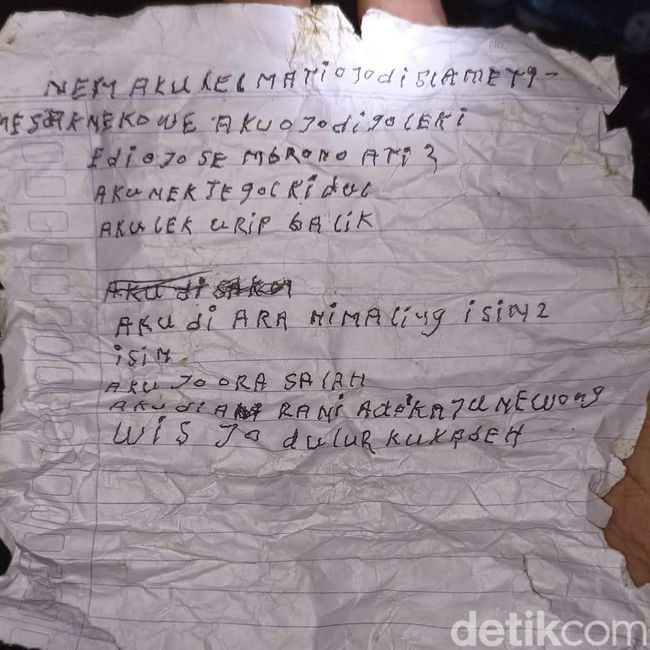 NEM AKU KEL MATI OJO di SLAMETI
MESAKNE KOWE AKU OJO di GOLEKI
Edi OJO SEMBRONO ATI2
AKU NEK TEGOL Kidul
AKU LEK URIP BALIK
AKU di
AKU di ARANI MALing iSiN2
iSiN
AKU JO ORA SALAH
AKU di ARANi KATUNE WONG
WIS JO dULUR KU KABEH
detikcom